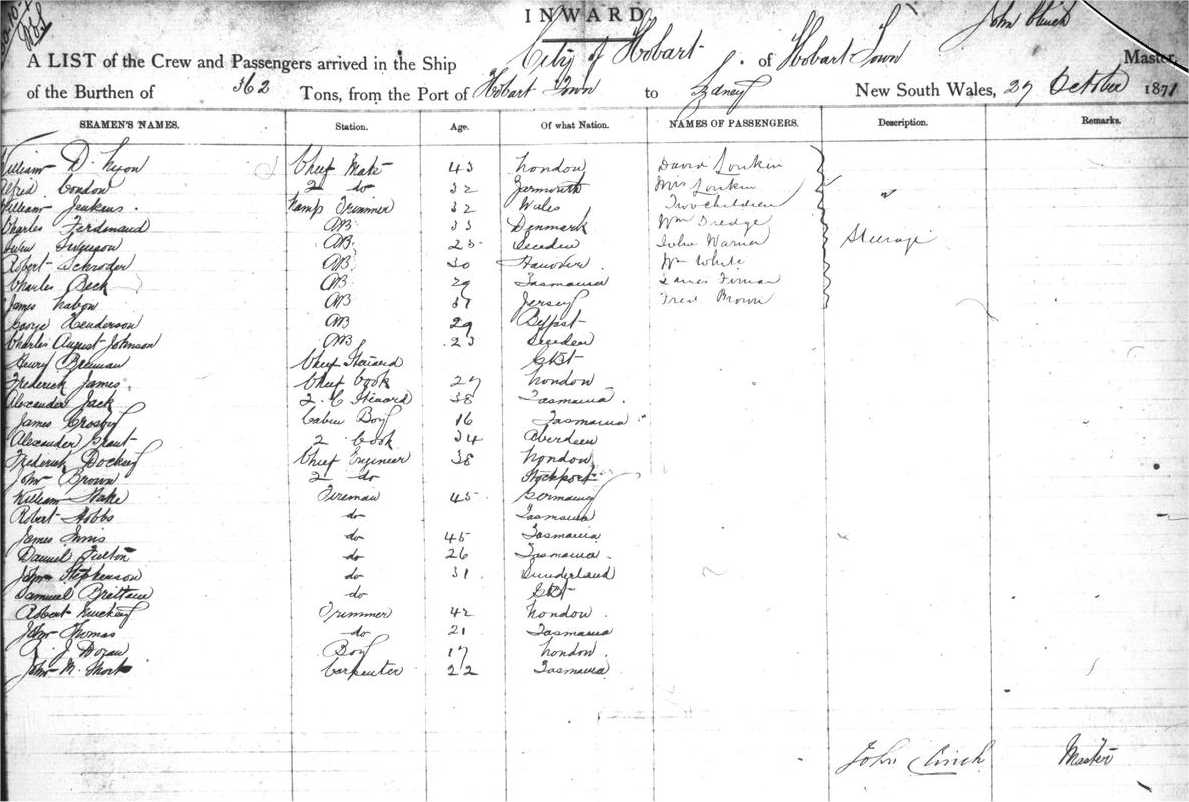 INWARD
John Clinch
A LIST of the Crew and Passengers arrived in the Ship City of Hobart of Hobart Town Master,
of the Burthen of 362 Tons, from the Port of Hobart Town to Sydney New South Wales, 27 October 1871
SEAMEN'S NAMES. Station. Age. Of what Nation. NAMES OF PASSENGERS. Description. Remarks.
William D. Nixon Chief Mate 43 London David
Alfred Condon 2 do 32 Yarmouth Mrs
William Jenkins Lamp Trimmer 32 Wales Two Children
Charles Ferdinand AB 33 Denmark Wm Dredge
Ferguson AB 23 Sweden John Warner Steerage
Robert Schroder AB 30 Hanover Wm White
Charles Beck AB 29 Tasmania
James AB 37 Jersey Fred Brown
George Henderson AB 29 Belfast
Charles August Johnson AB 23 Sweden
Henry Brennan Chief Steward
Frederick James Chief Cook 27 London
Alexander Jack 2 C Steward 38 Tasmania
James Crosby Cabin Boy 16 Tasmania
Alexander Grant 2 Cook 34 Aberdeen
Frederick Chief Engineer 38 London
John Brown 2 do Stockport
William Fireman 45 Germany
Robert Hobbs do Tasmania
James Innis do 45 Tasmania
Daniel Fulton do 26 Tasmania
John Stephenson do 31 Sunderland
Samuel do
Robert Trimmer 42 London
John Thomas do 21 Tasmania
J Doran Boy 17 London
John M. Short Carpenter 22 Tasmania
John Clinch Master